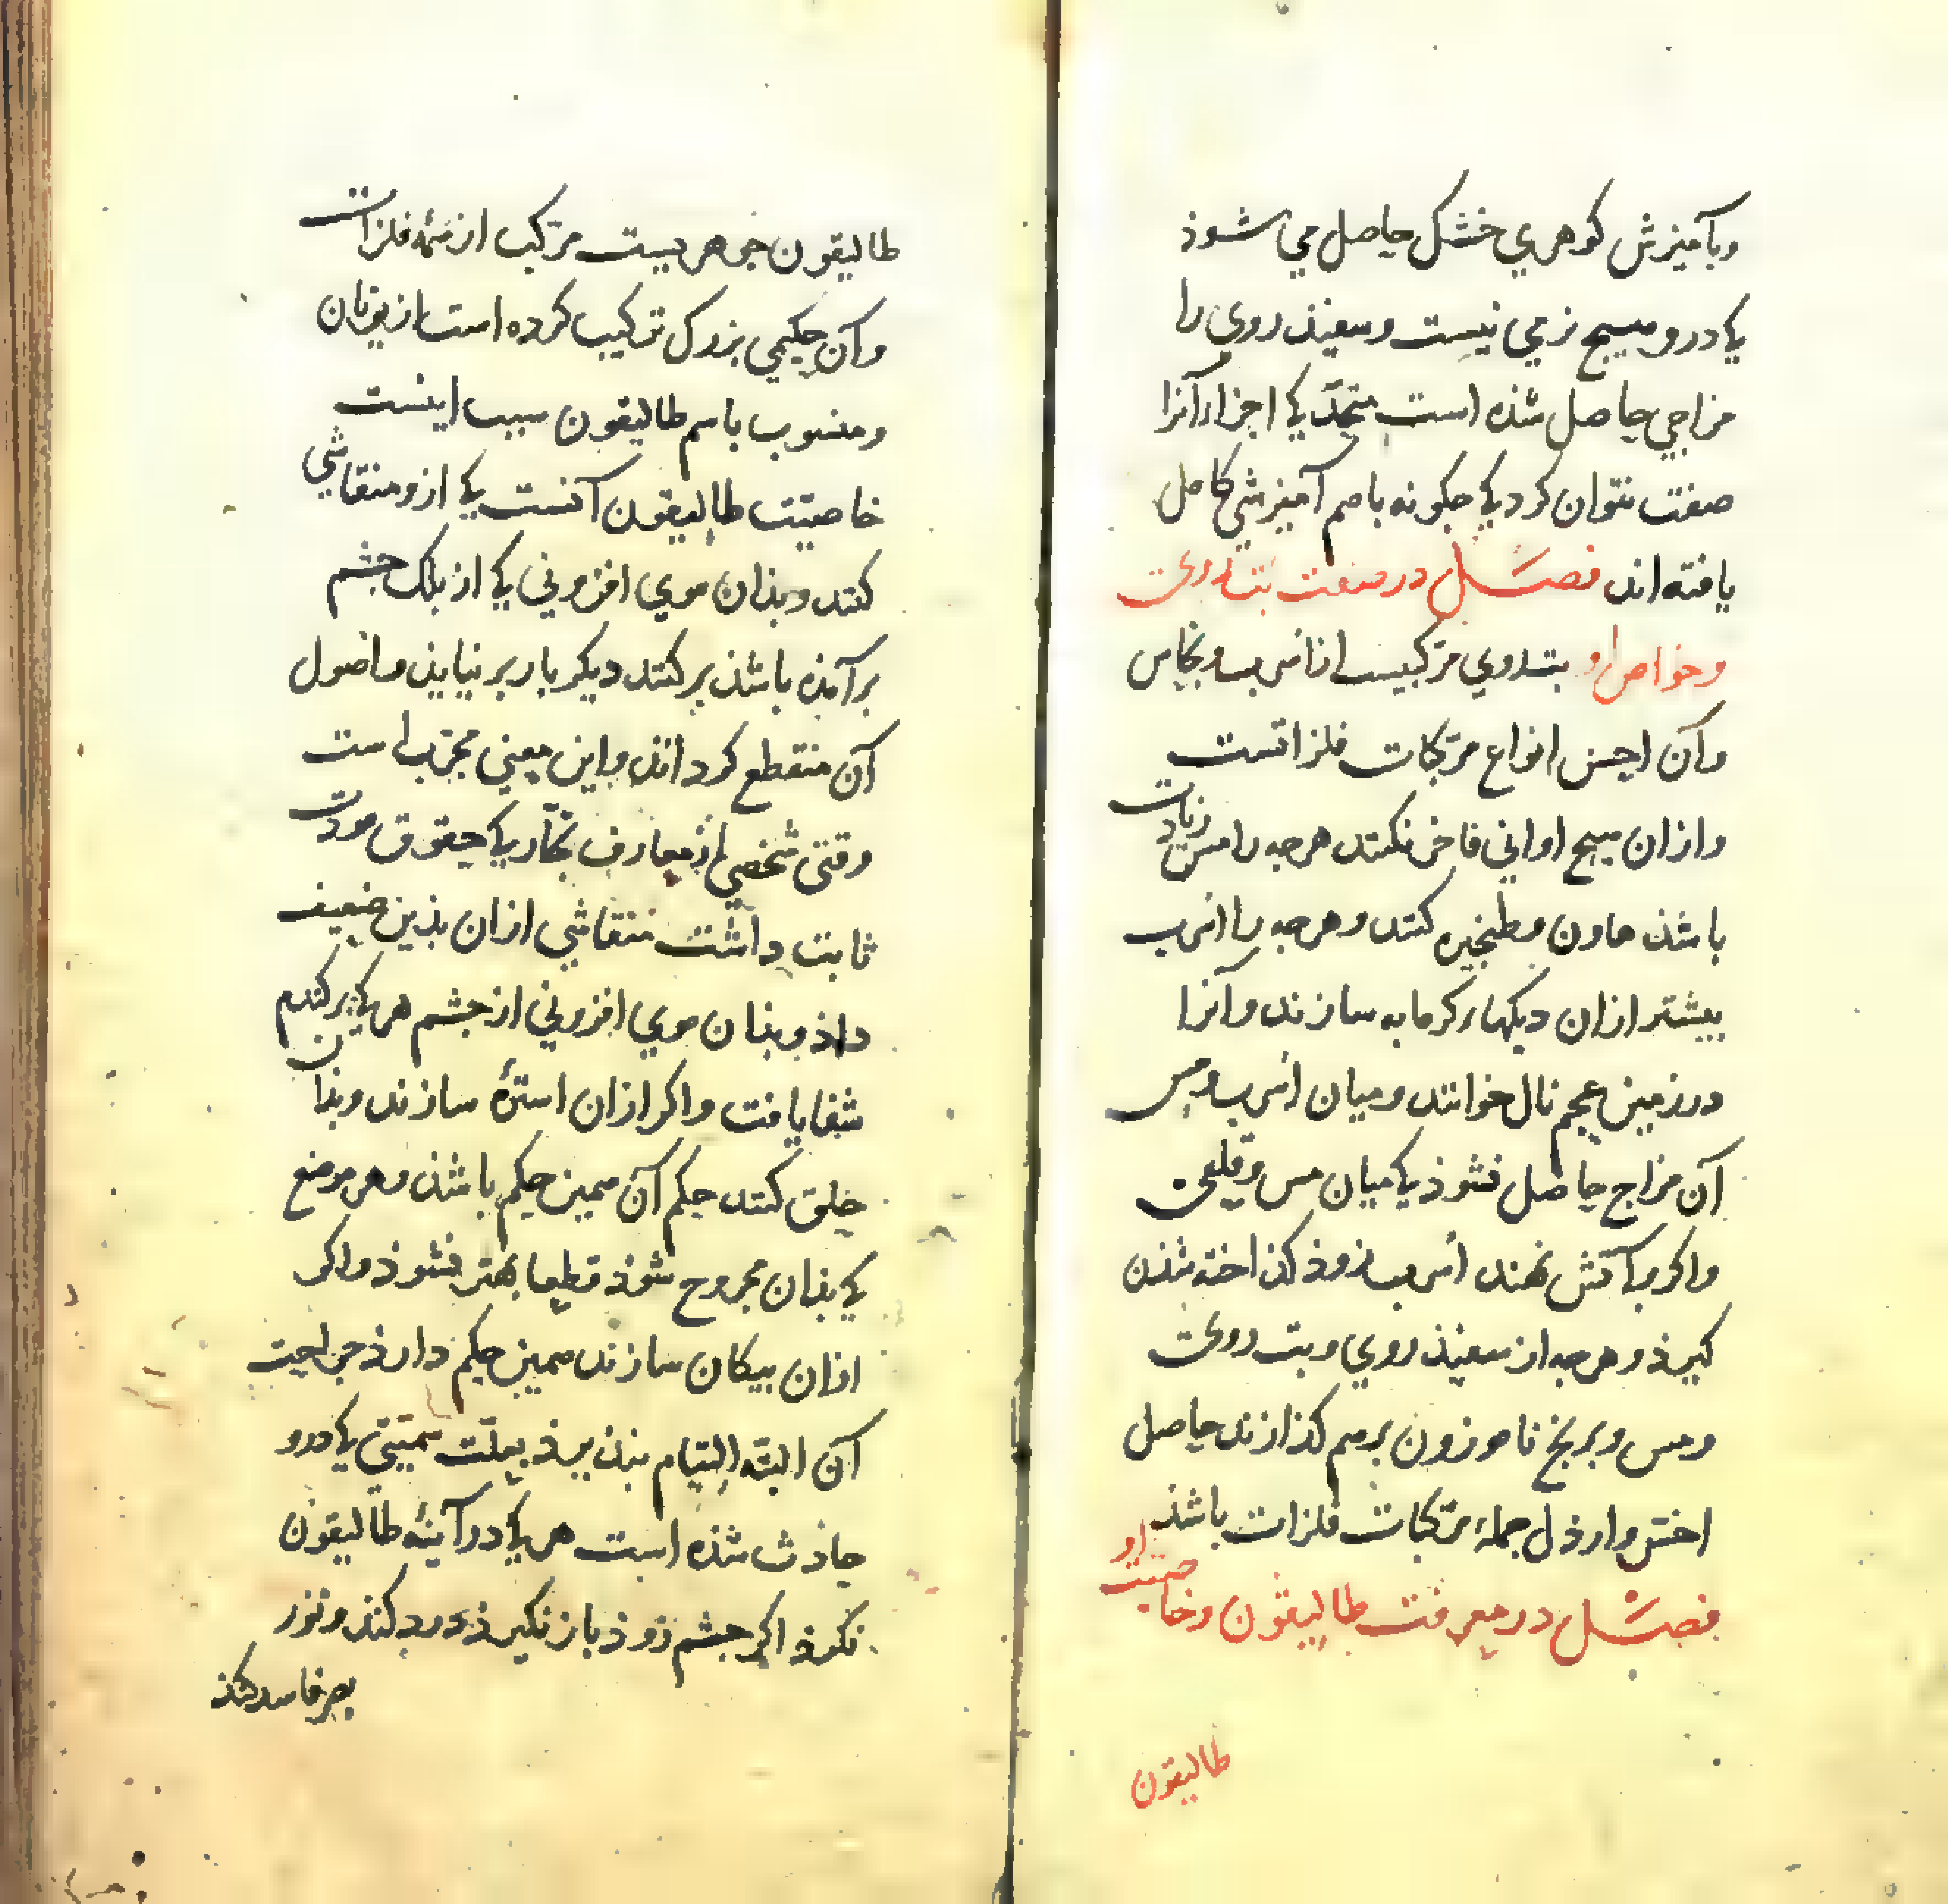 وبآمیزش کوهری خشک حاصل می شوذ
که درو هیچ نرمی نیست وسفیذ روی را
مزاجی حاصل شذه است متحد که اجزاء آنرا
صفت نتوان کرد که چکونه باهم آمیزشی کامل
یافته اند فصل در صفت بتروی
وخواص او بتروی مرکبیست از اسرب ونحاس
وآن احسن انواع مرکبات فلزاتست
وازان هیچ اوانی فاخر نکنند هرچه را مس زیادت
باشذ هاون وطنجیره کنند وهرچه را اسرب
بیشتر ازان دیکهاء کرمابه سازند وآنرا
در زمین عجم نال خوانند ومیان اسرب ومس
آن مزاج حاصل نشوذ که میان مس وقلعی
واکر بر آتش نهند اسرب زوذ کذاخته شذن
کیرذ وهرچه از سفیذ روی وبت روی
ومس وبرنج ناموزون برهم کذازند حاصل
اخس وارذل جمله مرکبات فلزات باشذ
فصل در معرفت طالیقون وخاصیت او
طالیقون
طالیقون جوهریست مرکب از همه فلزات
وآن حکیمی بزرک ترکیب کرده است از یونان
ومنسوب باسم طالیقون سبب اینست
خاصیت طالیقون آنست که ازو منقاشی
کنند وبذان موی افزونی که از بلک چشم
برآمذه باشذ برکنند دیکر بار بر نیایذ واصول
آن منقطع کرداند واین معنی مجرب است
وقتی شخصی از معارف تجار که حقوق مودت
ثابت داشت منقاشی ازان بذین ضعیف
داذ وبذان موی افزونی از چشم هرکه برکندم
شفا یافت واکر ازان استره سازند وبذان
حلق کنند حکم آن همین حکم باشذ وهر موضع
که بذان مجروح شوذ قطعا بهتر نشوذ واکر
ازان بیکان سازند همین حکم دارذ جراحت
آن البته التیام نبذیرذ بعلت سمیتی که درو
حاذث شذه است هرکه در آینه طالیقون
نکرذ اکر چشم زوذ باز نکیرذ درد کند ونور
بصر فاسد کند